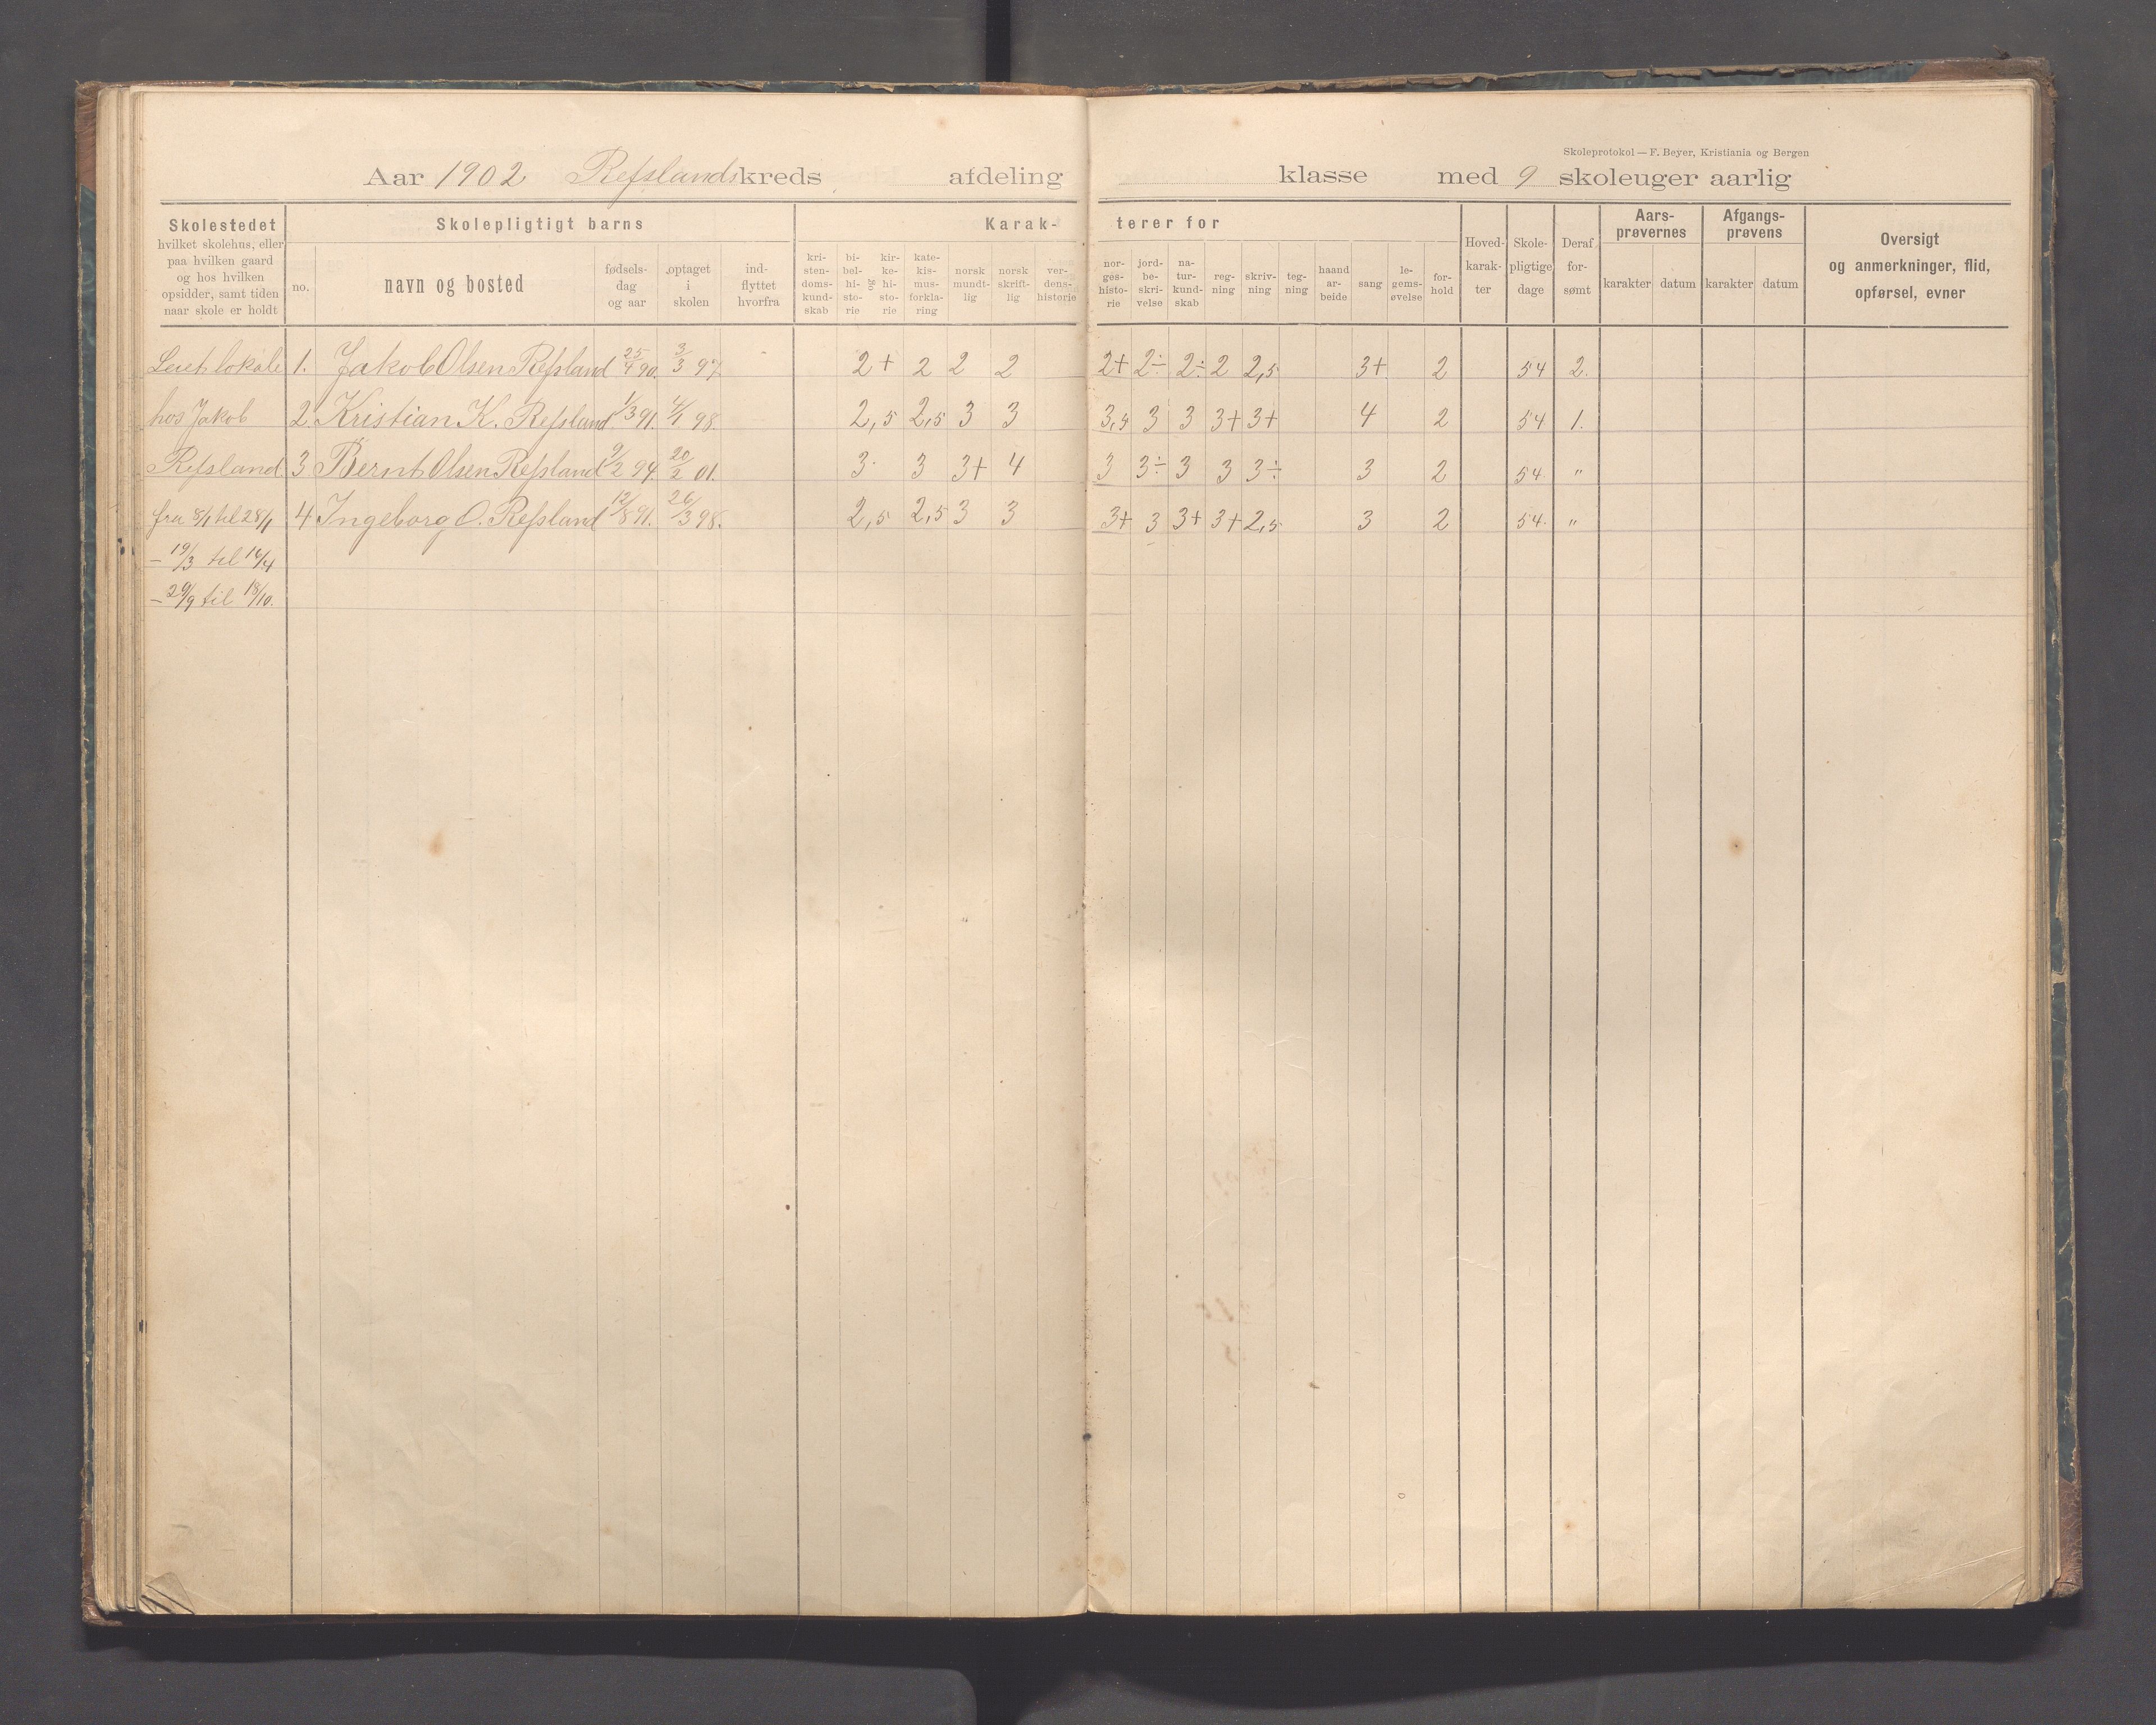 Skoleprotokol — F. Beyer, Kristiania og Bergen
Aar 1902 Refslands kreds afdeling klasse med 9 skoleuger aarlig
Skolestedet
hvilket skolehus, eller
paa hvilken gaard
og hos hvilken
opsidder, samt tiden
naar skole er holdt
Skolepligtigt barns
no.
navn og bosted
fødsels-
dag
og aar
optaget
i
skolen
ind-
flyttet
hvorfra
Karak-
terer for
kri-
sten-
doms-
kund-
skab
bi-
bel-
hi-
sto-
rie
og
kir-
ke-
hi-
sto-
rie
kate-
kis-
mus-
forkla-
ring
norsk
mundt-
lig
norsk
skrift-
lig
ver-
dens-
historie
nor-
ges-
histo-
rie
jord-
be-
skri-
velse
na-
tur-
kund-
skab
reg-
ning
skriv-
ning
teg-
ning
haand
ar-
beide
sang
le-
gems-
øvelse
for-
hold
Hoved-
karak-
ter
Skole-
pligtige
dage
Deraf
for-
sømt
Aars-
prøvernes
karakter datum
Afgangs-
prøvens
karakter datum
Oversigt
og anmerkninger, flid,
opførsel, evner
Leiet lokale 1. Jakob Olsen Refsland 25/4 90. 3/3 97 2+ 2 2 2 2+ 2÷ 2÷ 2 2,5 3+ 2 54 2.
hos Jakob 2. Kristian K. Refsland 1/3 91. 4/1 98. 2,5 2,5 3 3 3,5 3 3 3+ 3+ 4 2 54 1.
Refsland 3 Bernt Olsen Refsland 9/2 94. 20/2 01. 3 3 3+ 4 3 3÷ 3 3 3÷ 3 2 54. "
fra 8/1 til 28/1 4 Ingeborg O. Refsland 12/8 91. 26/3 98. 2,5 2,5 3 3 3+ 3 3+ 3+ 2,5 3 2 54. "
– 19/3 til 14/4
– 29/9 til 18/10.